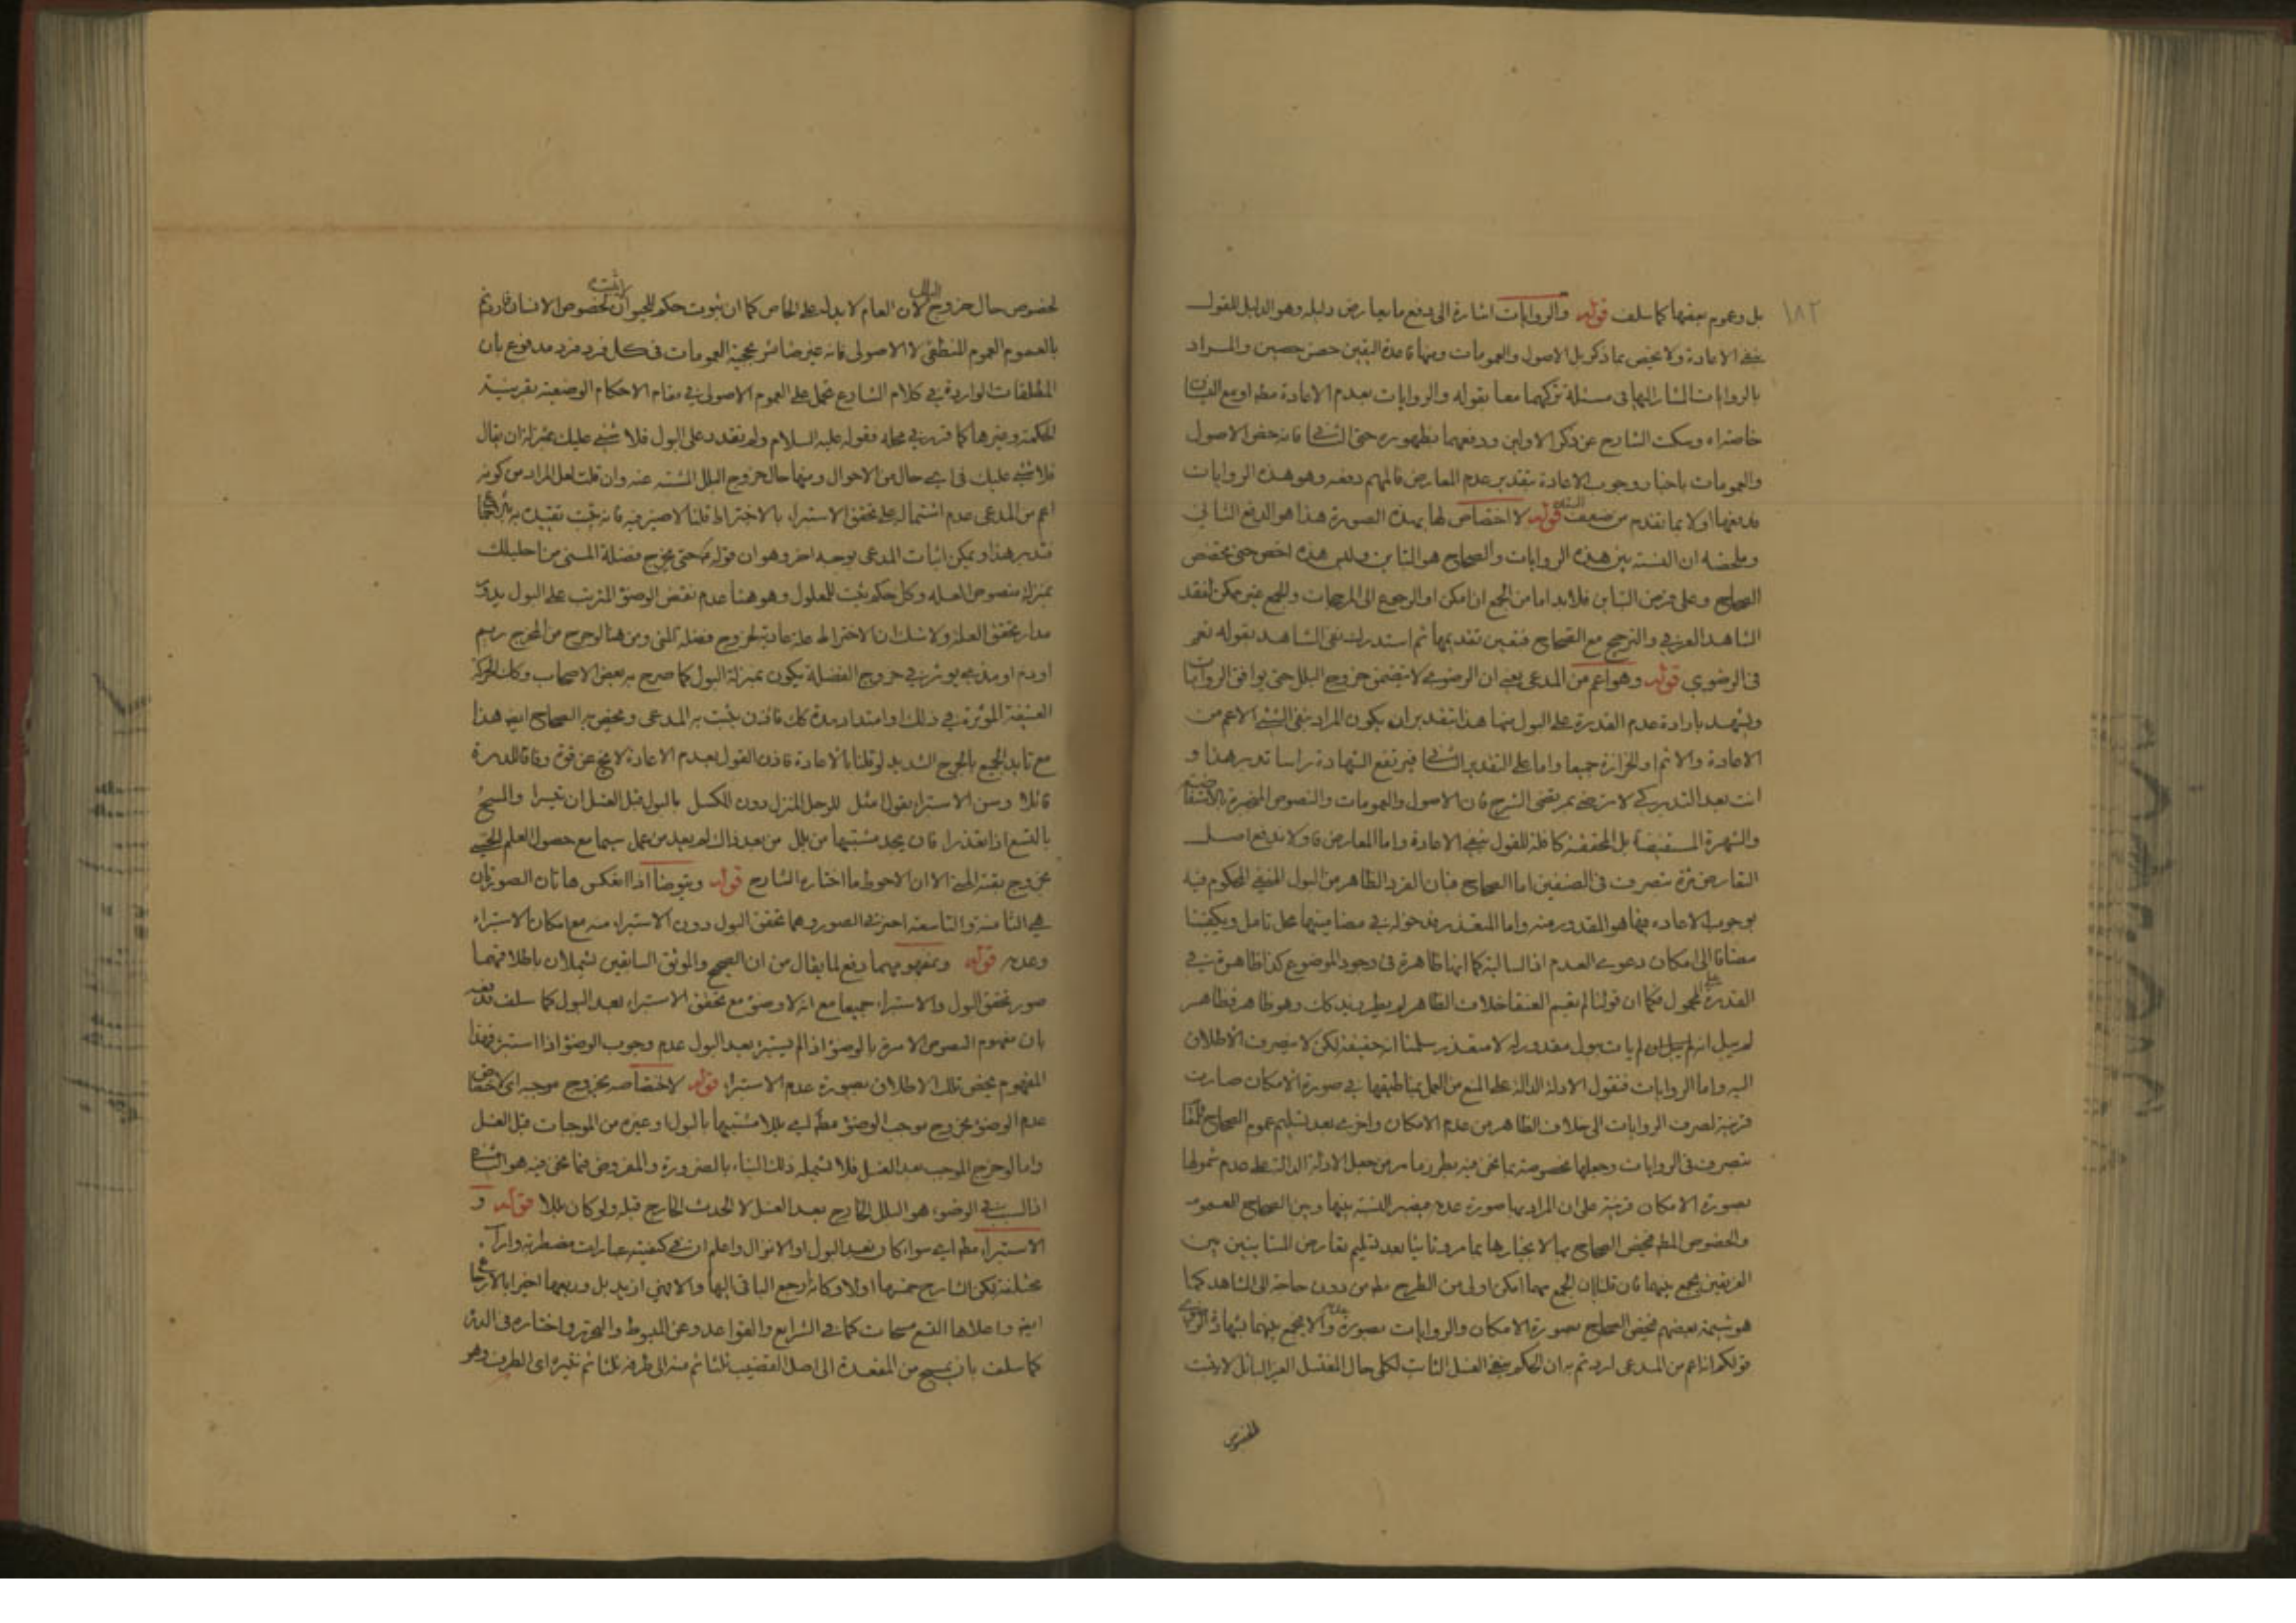 ١٨٢
بل وعموم بعضها كما سلف قوله والروايات اشارة الى دفع ما يعارض دليله وهو الدليل للقول
بنفي الاعادة ولا يختص بما ذكر بل الاصول والعمومات ومنها قاعدة اليقين حصن حصين والمراد
بالروايات المشار اليها في مسئلة تركهما معا بقوله والروايات بعدم الاعادة مطلقا او مع النسيان
خاصة اه وسكت الشارح عن ذكر الاولين ودفعهما بظهوره حتى الثاني فانه خص الاصول
والعمومات باخبار وجوب الاعادة بتقدير عدم المعارض فالمهم دفعه وهو هذه الروايات
فدفعها اولا بما تقدم من ضعف السند قوله لا اختصاص لها بهذه الصورة هذا هو الدفع الثاني
وملخصه ان النسبة بين هذه الروايات والصحاح هو التباين وليس هذه اخص حتى تخصص
الصحاح وعلى فرض التباين فلابد اما من الجمع ان امكن او الرجوع الى المرجحات والجمع غير ممكن لفقد
الشاهد العرفي والترجيح مع الصحاح فتعين تقديمها ثم استدرك نفي الشاهد بقوله نعم
في الرضوي قوله وهو اعم من المدعى يعني ان الرضوي لا يتضمن خروج البلل حتى يوافق الروايات
ويشهد بارادة عدم القدرة على البول منها هذا بتقدير ان يكون المراد بنفي الشيء الاعم من
الاعادة والاثم او الحزازة جميعا واما على التقدير الثاني فيرتفع الشهادة راسا تدبر هذا و
انت بعد التدبر كي لا ترضى بمرتضى الشرح فان الاصول والعمومات والنصوص المنجبرة بالاستفاضة
والشهرة المستفيضة بل المحققة كافلة للقول بنفي الاعادة واما المعارض فاولا ندفع اصل
التعارض تارة بتصرف في الصنفين اما الصحاح فبان الفرد الظاهر من البول المنفي المحكوم فيه
بوجوب الاعادة فيها هو المقدور منه واما المتعذر فدخوله في مضامينها محل تامل ويكفينا
مضافا الى امكان دعوى العدم اذ السالبة كما انها ظاهرة في وجود الموضوع كذا ظاهرة في
القدرة على المحمول فكما ان قولنا لم يقم العنقا خلاف الظاهر لم يطر زيد كك وهو ظاهر فظاهر
لم يبل انه لم يات ببول مقدور له لا متعذر سلمنا انه حقيقة لكن لا ينصرف الاطلاق
اليه واما الروايات فنقول الادلة الدالة على المنع من العمل بما طبقها في صورة الامكان صارت
قرينة لصرف الروايات الى خلاف الظاهر من عدم الامكان واخرى بعد تسليم عموم الصحاح
بتصرف في الروايات وجعلها مخصوصة بما نحن فيه بطرز ما مر من جعل الادلة الدالة على عدم شمولها
بصورة الامكان قرينة على ان المراد بها صورة عدمه فيصير النسبة بينها وبين الصحاح العموم
والخصوص المطلق فيخص الصحاح بها لانجبارها بما مر وثانيا بعد تسليم تعارض المتباينين بين
الفريقين يجمع بينهما فان قلنا ان الجمع مهما امكن اولى من الطرح مطلقا من دون حاجة الى الشاهد كما
هو شيمة بعضهم فيخص الصحاح بصورة الامكان والروايات بصورة عدمه والا يجمع بينهما بشهادة الرضوي
قولكم انه اعم من المدعى لرد ثم به ان الحكم بنفي الغسل الثابت لكلي حال المغتسل الغير البائل لا يثبت
لخصوص
لخصوص حال خروج البلل لان العام لا يدل على الخاص كما ان ثبوت حكم للحيوان لا يثبته لخصوص الانسان فان اردتم
بالعموم العموم المنطقي لا الاصولي فانه غير ضائر بحجية العمومات في كل فرد فرد مدفوع بان
المطلقات الواردة في كلام الشارع تحمل على العموم الاصولي في مقام الاحكام الوضعية بقرينة
الحكمة وغيرها كما قرر في محله فقوله عليه السلام ولم تقدر على البول فلا شيء عليك بمنزلة ان يقال
فلا شيء عليك في اي حال من الاحوال ومنها حال خروج البلل المشتبه عنه وان قلت لعل المراد من كونه
اعم من المدعى عدم اشتماله على تحقق الاستبراء بالاختراط قلنا لا ضير فيه فانه يثبت تقييده به
فتدبر هذا ويمكن اثبات المدعى بوجه اخر وهو ان قوله حتى يخرج فضلة المني من احليلك
بمنزلة منصوص العلة وكل حكم يثبت للمعلول وهو هنا عدم نقض الوضوء المترتب على البول يدور
مدار تحقق العلة ولا شك ان الاختراط علة عادية لخروج فضلة المني ومن هنا لو خرج من المخرج ريم
او دم او مذي يؤثر في خروج الفضلة يكون بمنزلة البول كما صرح به بعض الاصحاب وكك الحركة
العنيفة المؤثرة في ذلك او امتداد مدة كك فاذن يثبت به المدعى ويخص به الصحاح ايضا هذا
مع تايد الجميع بالحرج الشديد لو قلنا بالاعادة فاذن القول بعدم الاعادة لا يخ عن قوة وفاقا للدرة
قائلا وسن الاستبراء بقول مثل للرجل المنزل دون المكسل بالبول قبل الغسل ان تيسرا والمسح
بالتسع اذا تعذرا فان يجد مشتبها من بلل من بعد ذاك لم يعد من عمل سيما مع حصول العلم
بخروج بقية المني الا ان الاحوط ما اختاره الشارح قوله ويتوضأ اذا انعكس هاتان الصورتان
هي الثامنة والتاسعة اخرتي الصور وهما تحقق البول دون الاستبراء منه مع امكان الاستبراء
وعدمه قوله وبمفهومهما دفع لما يقال من ان الصحيح والموثق السابقين تشملان باطلاقهما
صور تحقق البول والاستبراء جميعا مع انه لا وضوء مع تحقق الاستبراء بعد البول كما سلف فدفعه
بان مفهوم النصوص الامرة بالوضوء اذا لم يستبرء بعد البول عدم وجوب الوضوء اذا استبرء فهذا
المفهوم يخص تلك الاطلاق بصورة عدم الاستبراء قوله لاختصاصه بخروج موجبه اي اختصاص
عدم الوضوء بخروج موجب الوضوء مطلقا اي بللا مشتبها بالبول او غيره من الموجبات قبل الغسل
واما لو خرج الموجب بعد الغسل فلا تشمله ذلك البناء بالضرورة والمفروض فيما نحن فيه هو الثاني
اذ السبب في الوضوء هو البلل الخارج بعد الغسل لا الحدث الخارج قبله ولو كان بللا قوله و
الاستبراء مطلقا اي سواء كان بعد البول او الانزال واعلم ان في كيفيته عبارات مضطربة واراء
مختلفة لكن الشارح حصرها اولا وكانه ارجع الباقي اليها والا فهي ازيد بل وربعها اخيرا بالارجاع
ايضا واعلاها التسع مسحات كما في الشرايع والقواعد وعن المبسوط والتحرير واختاره في الدرة
كما سلف بان يمسح من المقعدة الى اصل القضيب ثلثا ثم منه الى طرفه ثلثا ثم نتره اي الطرف وهو